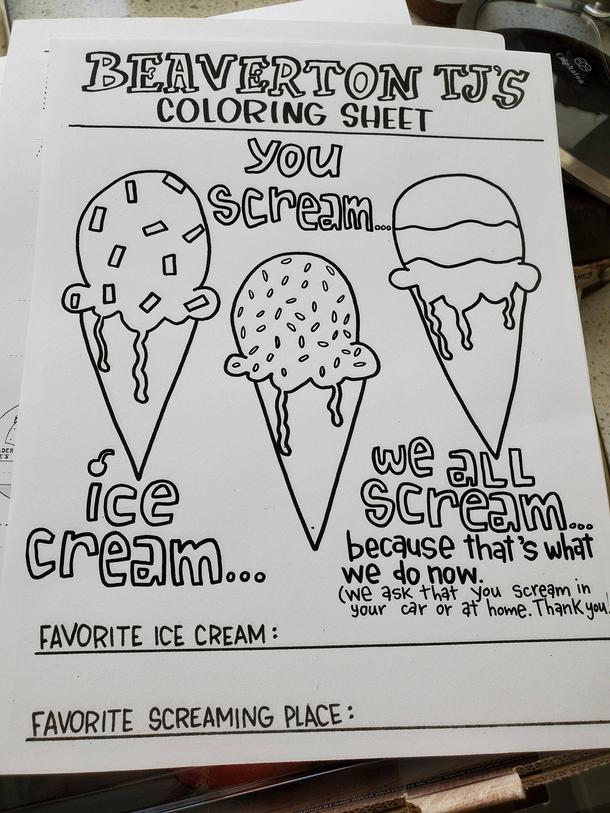 BEAVERTON TJ'S
COLORING SHEET
you
scream...
ice
cream...
we all
scream...
because that's what
we do now.
(we ask that you scream in
your car or at home. Thank you!
FAVORITE ICE CREAM:
FAVORITE SCREAMING PLACE:
Calphalon